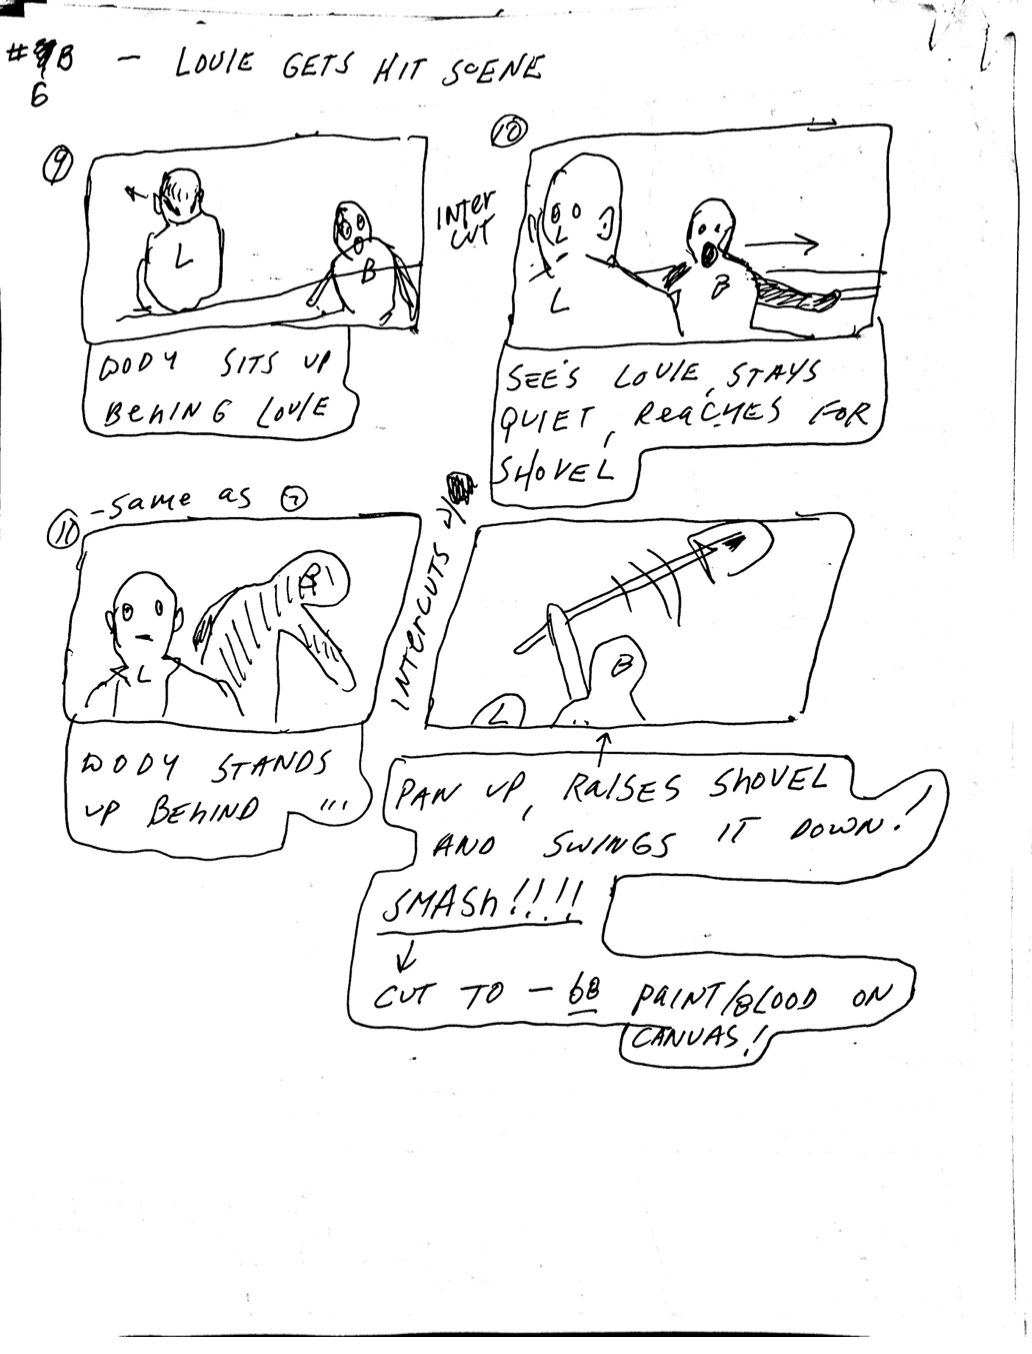 #B - LOUIE GETS HIT SCENE
6
9
L
B
BODY SITS UP
BEHING LOUIE
INTER
CUT
10
L
B
SEE'S LOUIE, STAYS
QUIET, REACHES FOR
SHOVEL
11 - SAME AS 7
L
B
BODY STANDS
UP BEHIND ...
INTERCUTS W/
L
B
PAN UP, RAISES SHOVEL
AND SWINGS IT DOWN!
SMASH!!!!
CUT TO - 6B PAINT/BLOOD ON
CANVAS!